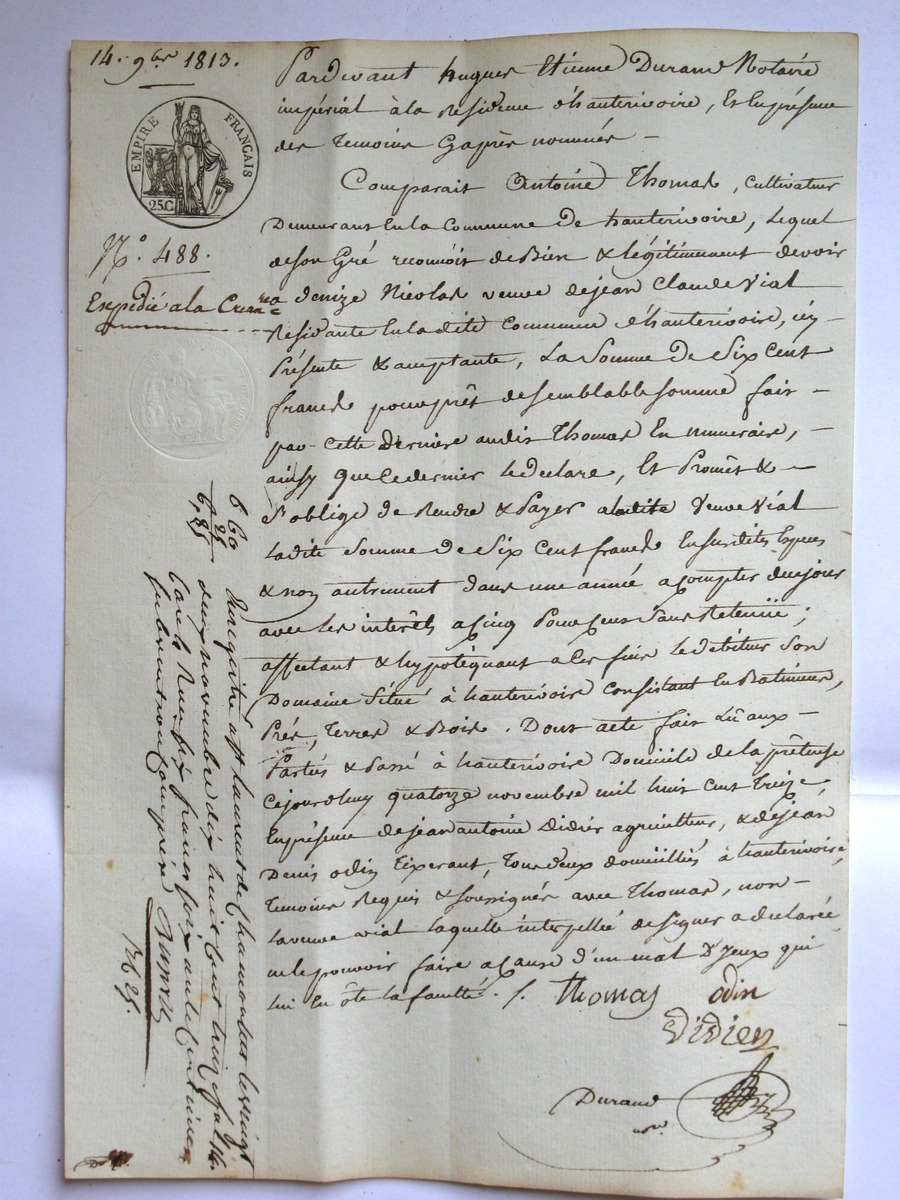 14. 9bre 1813.
EMPIRE FRANÇAIS
25.C.
N.° 488.
Expédié a la Creanre
Pardevant hugues Etienne Durand Notaire
impérial à la Residence d'hauterivoire, Et En présence
des Temoins Cyaprès nommés —
Comparait Antoine Thomas, Cultivateur
Demeurant En la Commune de hauterivoire, Lequel
de son Gré reconnoit de Bien & légitimement devoir
a denize Nicolas veuve de jean Claude Vial
Residante En la dite Commune d'hauterivoire, icy
Présente & acceptante, La Somme de Six Cent
francs pour prêt de semblable somme fait —
par Cette Dernière audit Thomas En numeraire, —
ainsy que Ce dernier le declare, Et Promet & —
S'oblige de Rendre & Payer a ladite Veuve Vial
Ladite Somme de Six Cent francs En susdites Especes
& non autrement dans une année a compter de ce jour
avec les intérêts a Cinq Pour Cent Sans Retenüe ;
affectant & hypotéquant a Ces fins le débiteur Son
Domaine Situé à hauterivoire Consistant En Batimens,
Prés, Terres & Bois. Dont acte fait Lû aux —
Parties & Passé à hauterivoire Domicile de la prêteuse
Cejourdhuy quatorze novembre mil huit Cent Treize,
En présence de jean antoine Didier agriculteur, & de jean
Denis odin Tixerant, Tous deux domiciliés à hauterivoire,
Temoins Requis & soussignés avec Thomas, non —
La veuve vial laquelle interpellée de signer a declarée
ne le pouvoir faire a Cause d'un mal D'yeux qui
lui En ôte la faculté. /.
Thomas odin
Didier
Durand
nore.
6 60
25
6,85
Enregistré à St Laurent de Chamousset le vingt
deux novembre dix huit Cent treize fol. 14.
six francs soixante Centimes
subvention Comprise